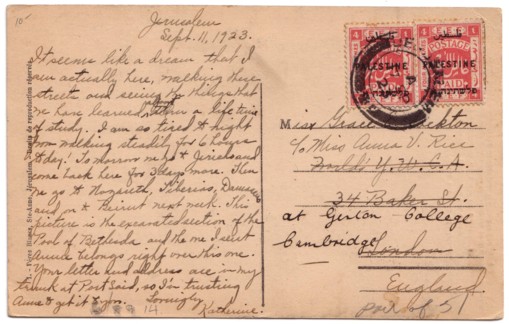 10-
Jerusalem
Sept. 11, 1923.
It seems like a dream that I
am actually here, walking these
streets and seeing the things that
we have learned thru a life time
of study. I am so tired to night
from walking steadily for 6 hours
to day! To morrow we go to Jericho and
come back here for 3 days more. Then
we go to Nazareth, Tiberias, Damascus
and on to Beirut next week. This
picture is the excavated section of the
Pool of Bethesda and the one I sent
Anna belongs right over this one.
Your letter and address are in my
trunk at Port Said, so I'm trusting
Anna to get it to you. Lovingly
Katherine.
14
POSTAGE
PAID
PALESTINE
POSTAGE
PAID
PALESTINE
Miss Grace
c/o Miss Anna V. Rice
World's Y.W.C.A.
34 Baker St.
at Girton College
Cambridge
London
England
pair of 5